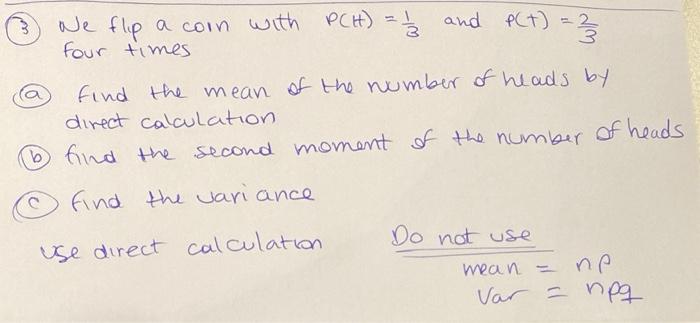 3 We flip a coin with P(H) = 1/3 and P(t) = 2/3
four times
a find the mean of the number of heads by
direct calculation
b find the second moment of the number of heads
c find the variance
use direct calculation
Do not use
mean = np
Var = npq